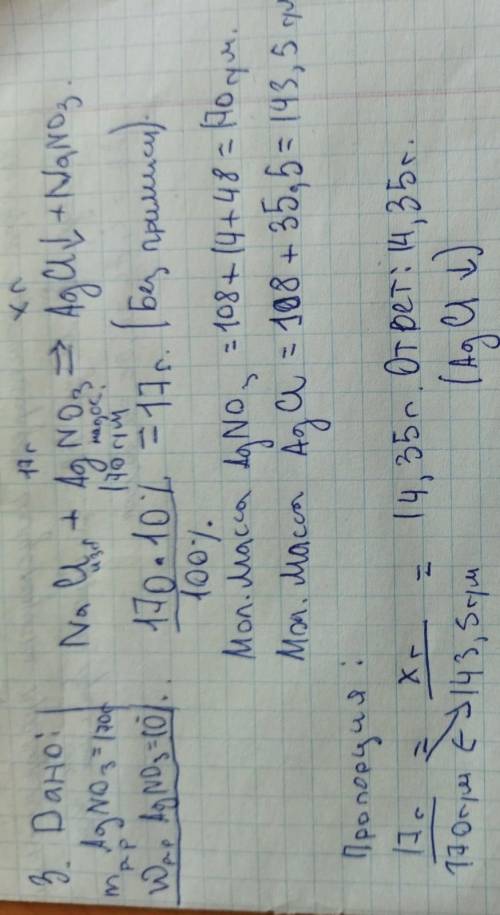 3. Дано:
m р-р AgNO3 = 170г
W р-р AgNO3 = 10%.
17г xг
NaCl изб + AgNO3 ⇒ AgCl↓ + NaNO3.
недос.
170 г/м
170 • 10% / 100% = 17г. (Без примису).
Мол. Масса AgNO3 = 108 + 14 + 48 = 170 г/м.
Мол. Масса AgCl = 108 + 35,5 = 143,5 г/м
Пропорция:
17г / 170 г/м = xг / 143,5 г/м = 14,35 г. Ответ: 14,35 г.
(AgCl ↓)